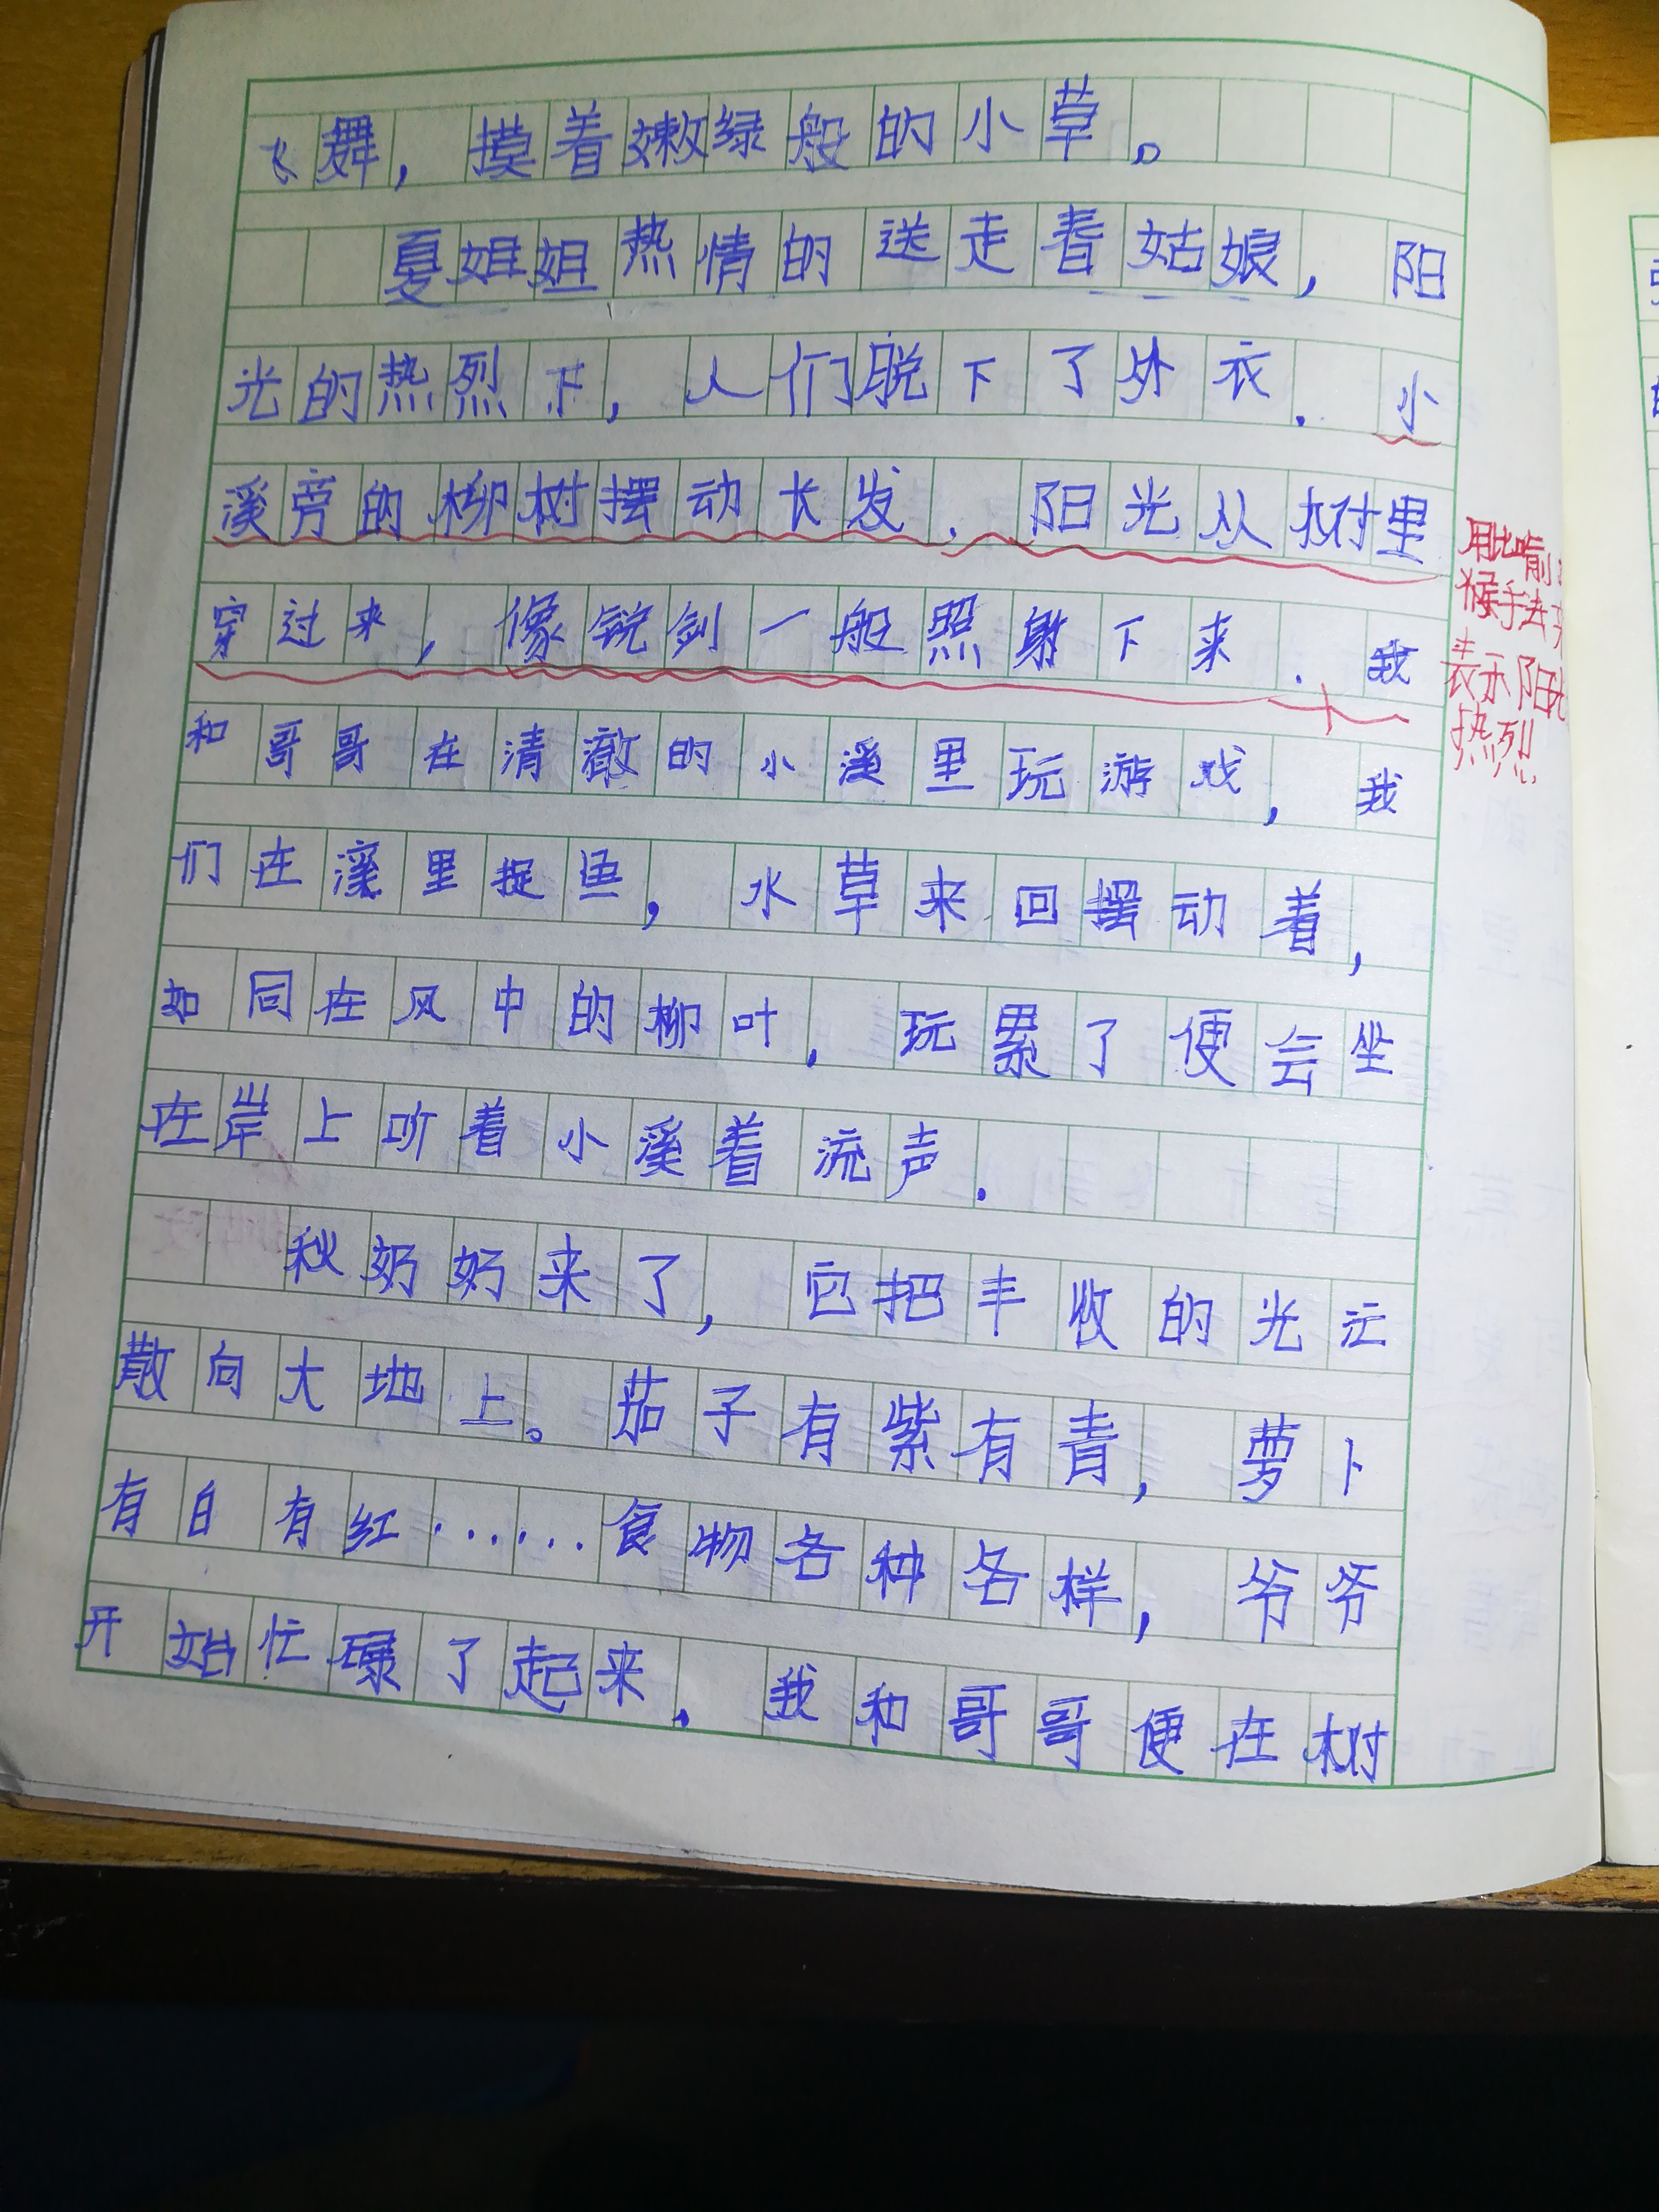 飞舞，摸着嫩绿般的小草。
夏姐姐热情的送走春姑娘，阳
光的热烈下，人们脱下了外衣．小
溪旁的柳树摆动长发．阳光从树里
穿过来，像锐剑一般照射下来．我
和哥哥在清澈的小溪里玩游戏，我
们在溪里捉鱼，水草来回摆动着，
如同在风中的柳叶，玩累了便会坐
在岸上听着小溪着流声．
秋奶奶来了，它把丰收的光芒
散向大地上。茄子有紫有青，萝卜
有白有红……食物各种各样，爷爷
开始忙碌了起来．我和哥哥便在树
用比喻
手去
表示阳光
热烈